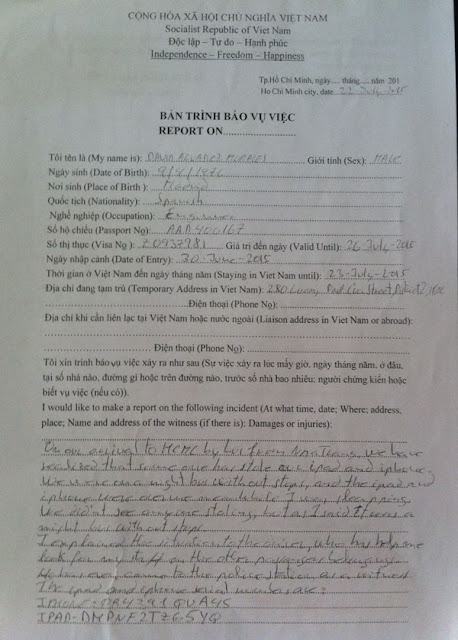 CỘNG HÒA XÃ HỘI CHỦ NGHĨA VIỆT NAM
Socialist Republic of Viet Nam
Độc lập – Tự do – Hạnh phúc
Independence – Freedom – Happiness
Tp.Hồ Chí Minh, ngày.... tháng..... năm 201
Ho Chi Minh city, date 22 July 2015
BẢN TRÌNH BÁO VỤ VIỆC
REPORT ON
Tôi tên là (My name is): DAVID ALVAREZ MORALES Giới tính (Sex): MALE
Ngày sinh (Date of Birth): 9/4/1976
Nơi sinh (Place of Birth ):
Quốc tịch (Nationality): Spanish
Nghề nghiệp (Occupation): Engineer
Số hộ chiếu (Passport No) AAA400167
Số thị thực (Visa No ): Z0937981 Giá trị đến ngày (Valid Until): 26 July 2015
Ngày nhập cảnh (Date of Entry): 30 June 2015
Thời gian ở Việt Nam đến ngày tháng năm (Staying in Viet Nam until): 23-July-2015
Địa chỉ đang tạm trú (Temporary Address in Viet Nam): 280 Street
Điện thoại (Phone No):
Địa chỉ khi cần liên lạc tại Việt Nam hoặc nước ngoài (Liaison address in Viet Nam or abroad):
Điện thoại (Phone No):
Tôi xin trình báo vụ việc xảy ra như sau (Sự việc xảy ra lúc mấy giờ, ngày tháng năm, ở đâu,
tại số nhà nào, đường gì hoặc trên đường nào, trước số nhà bao nhiêu: người chứng kiến hoặc
biết vụ việc (nếu có)).
I would like to make a report on the following incident (At what time, date; Where; address,
place; Name and address of the witness (if there is): Damages or injuries):
On our arrival to HCMC by bus from Nha Trang, we have
realized that some one has stole our ipad and iphone.
We were on a night bus without stops, and the ipad and
iphone were over me meanwhile I was sleeping.
We didn't see anyone stoling, but as I said it was a
night bus without stops.
I explained the situation to the driver, who has help me
look for my stuff on the other passengers belongings.
He has even came to the police station as a witness.
The ipad and iphone serial numbers are:
IPHONE: DX4391QVA4S
IPAD: DMPNF2TZG5YQ